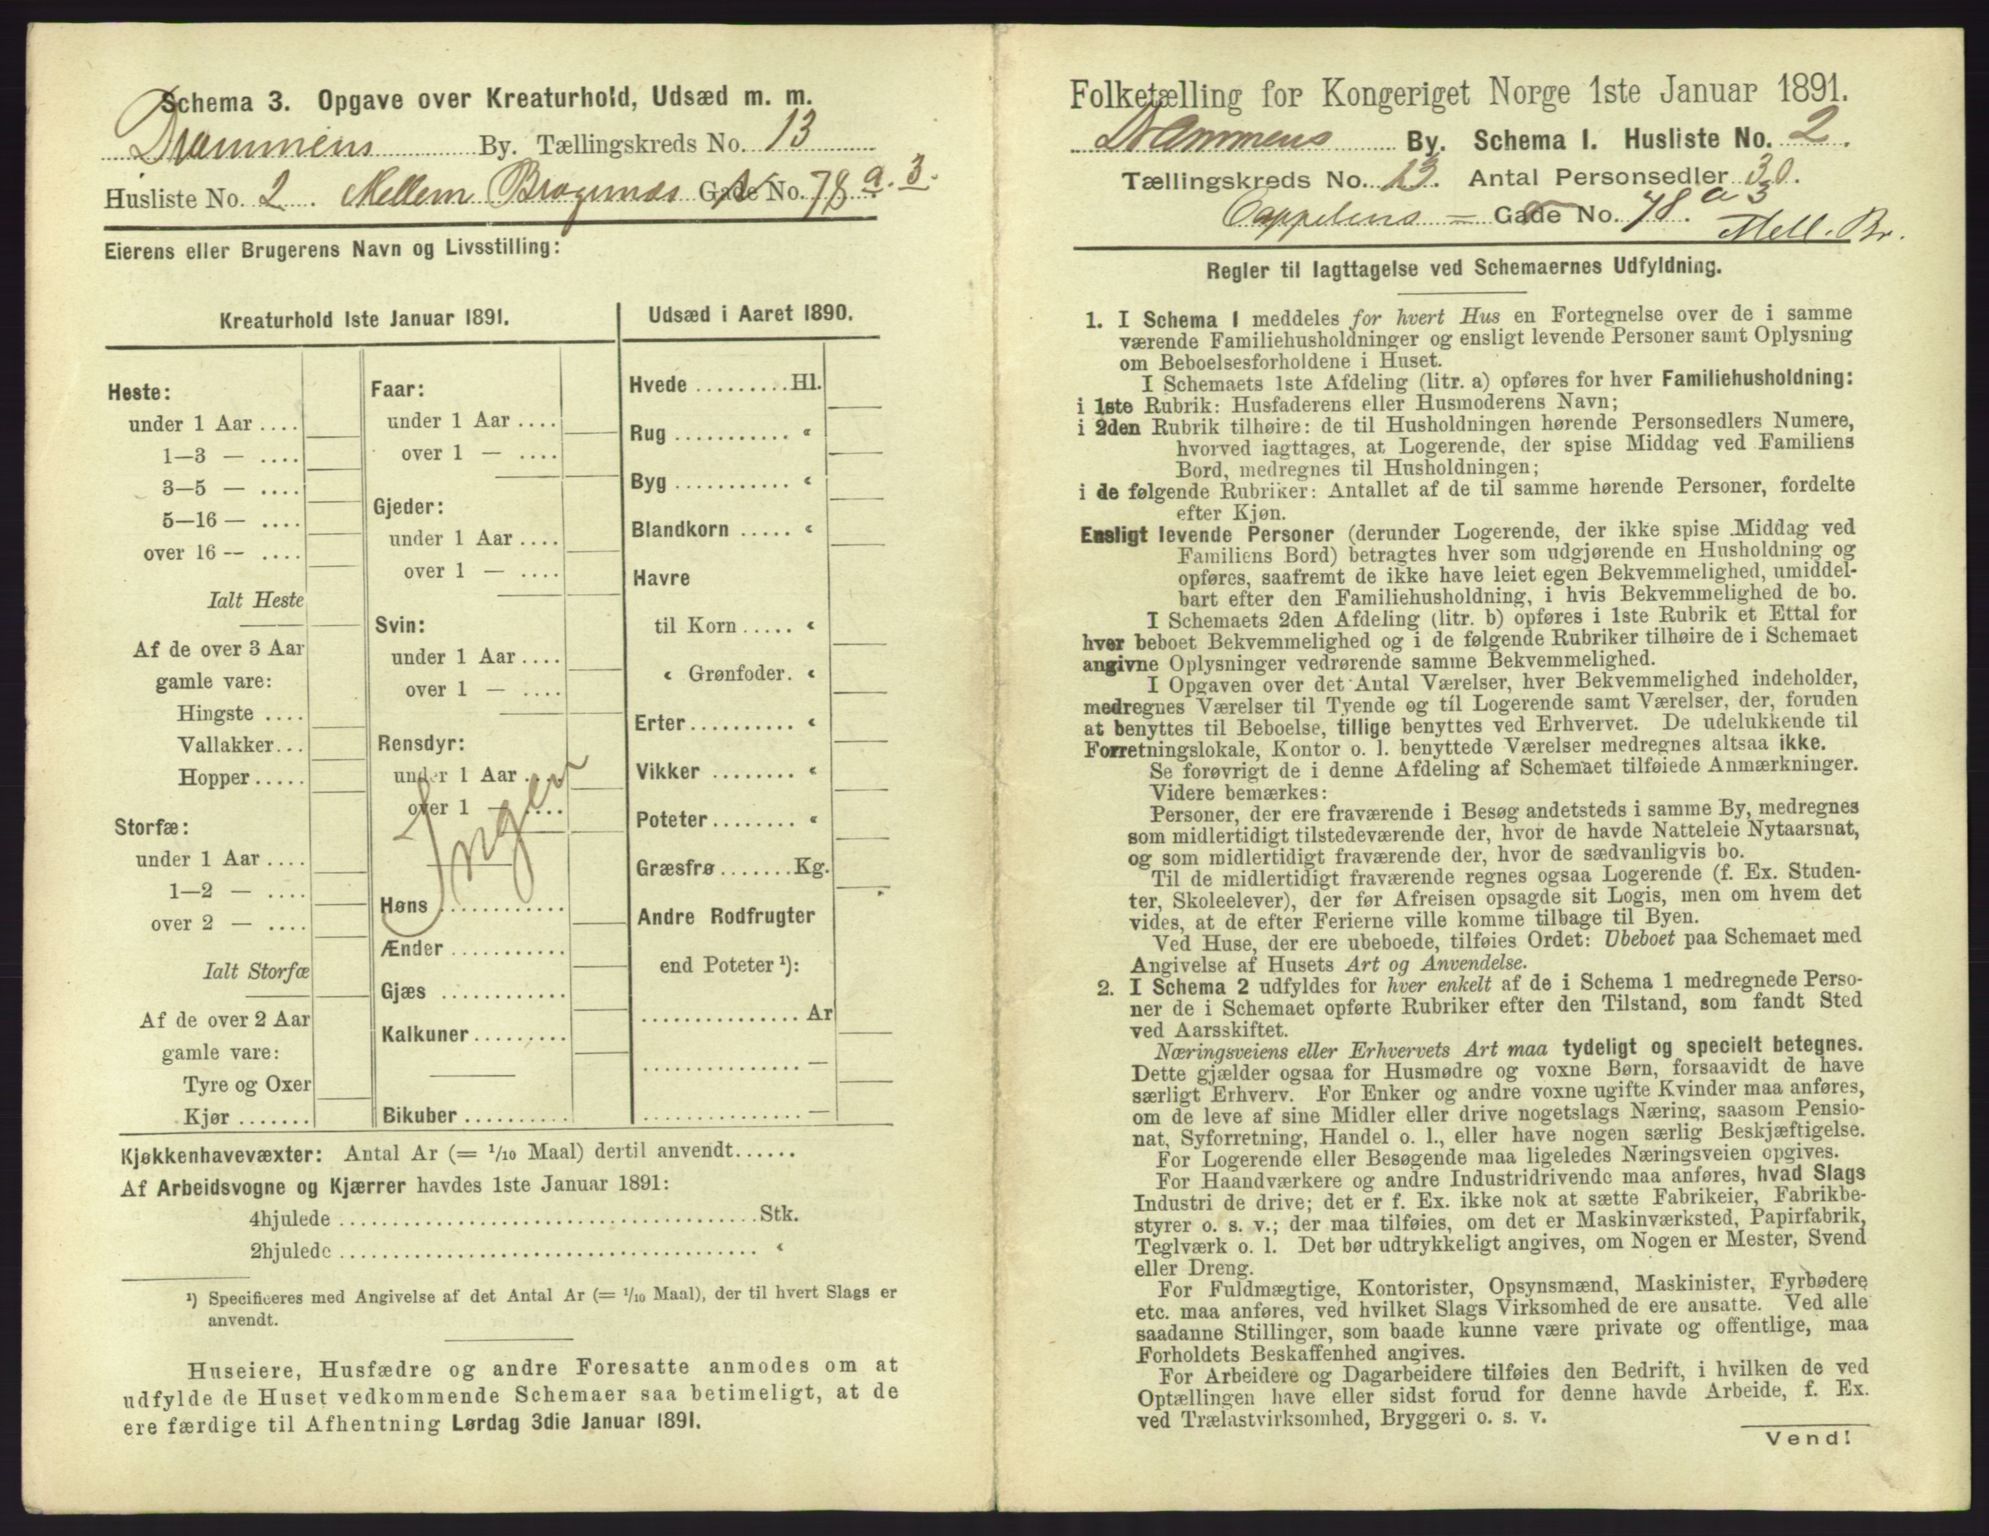 Schema 3. Opgave over Kreaturhold, Udsæd m. m.
Drammens By. Tællingskreds No. 13
Husliste No. 2. Mellem Bragernes Gade No. 78 a. 3.
Eierens eller Brugerens Navn og Livsstilling:
Kreaturhold 1ste Januar 1891.
Heste:
under 1 Aar ....
1—3 — ....
3—5 — ....
5—16 — ....
over 16 — ....
Ialt Heste
Af de over 3 Aar
gamle vare:
Hingste ....
Vallakker...
Hopper .....
Storfæ:
under 1 Aar ....
1—2 — ....
over 2 — ....
Ialt Storfæ
Af de over 2 Aar
gamle vare:
Tyre og Oxer
Kjør .......
Faar:
under 1 Aar ....
over 1 — ....
Gjeder:
under 1 Aar ....
over 1 — ....
Svin:
under 1 Aar ....
over 1 — ....
Rensdyr:
under 1 Aar ....
over 1 — ....
Ingen
Høns ............
Ænder ...........
Gjæs ............
Kalkuner .........
Bikuber ..........
Udsæd i Aaret 1890.
Hvede ......... Hl.
Rug ........... "
Byg ........... "
Blandkorn ..... "
Havre
til Korn ..... "
" Grønfoder. "
Erter .......... "
Vikker ........ "
Poteter ........ "
Græsfrø ....... Kg.
Andre Rodfrugter
end Poteter ¹):
............... Ar
............... —
............... —
Kjøkkenhavevæxter: Antal Ar (= 1/10 Maal) dertil anvendt ......
Af Arbeidsvogne og Kjærrer havdes 1ste Januar 1891:
4hjulede ..................................... Stk.
2hjulede ..................................... "
¹) Specificeres med Angivelse af det Antal Ar (= 1/10 Maal), der til hvert Slags er
anvendt.
Huseiere, Husfædre og andre Foresatte anmodes om at
udfylde de Huset vedkommende Schemaer saa betimeligt, at de
ere færdige til Afhentning Lørdag 3die Januar 1891.
Folketælling for Kongeriget Norge 1ste Januar 1891.
Drammens By. Schema I. Husliste No. 2.
Tællingskreds No. 13. Antal Personsedler 30.
Cappelens = Gade No. 78. a 3
Mell. Br.
Regler til Iagttagelse ved Schemaernes Udfyldning.
1. I Schema I meddeles for hvert Hus en Fortegnelse over de i samme
værende Familiehusholdninger og ensligt levende Personer samt Oplysning
om Beboelsesforholdene i Huset.
I Schemaets 1ste Afdeling (litr. a) opføres for hver Familiehusholdning:
i 1ste Rubrik: Husfaderens eller Husmoderens Navn;
i 2den Rubrik tilhøire: de til Husholdningen hørende Personsedlers Numere,
hvorved iagttages, at Logerende, der spise Middag ved Familiens
Bord, medregnes til Husholdningen;
i de følgende Rubriker: Antallet af de til samme hørende Personer, fordelte
efter Kjøn.
Ensligt levende Personer (derunder Logerende, der ikke spise Middag ved
Familiens Bord) betragtes hver som udgjørende en Husholdning og
opføres, saafremt de ikke have leiet egen Bekvemmelighed, umiddel-
bart efter den Familiehusholdning, i hvis Bekvemmelighed de bo.
I Schemaets 2den Afdeling (litr. b) opføres i 1ste Rubrik et Ettal for
hver beboet Bekvemmelighed og i de følgende Rubriker tilhøire de i Schemaet
angivne Oplysninger vedrørende samme Bekvemmelighed.
I Opgaven over det Antal Værelser, hver Bekvemmelighed indeholder,
medregnes Værelser til Tyende og til Logerende samt Værelser, der, foruden
at benyttes til Beboelse, tillige benyttes ved Erhvervet. De udelukkende til
Forretningslokale, Kontor o. l. benyttede Værelser medregnes altsaa ikke.
Se forøvrigt de i denne Afdeling af Schemaet tilføiede Anmærkninger.
Videre bemærkes:
Personer, der ere fraværende i Besøg andetsteds i samme By, medregnes
som midlertidigt tilstedeværende der, hvor de havde Natteleie Nytaarsnat,
og som midlertidigt fraværende der, hvor de sædvanligvis bo.
Til de midlertidigt fraværende regnes ogsaa Logerende (f. Ex. Studen-
ter, Skoleelever), der før Afreisen opsagde sit Logis, men om hvem det
vides, at de efter Ferierne ville komme tilbage til Byen.
Ved Huse, der ere ubeboede, tilføies Ordet: Ubeboet paa Schemaet med
Angivelse af Husets Art og Anvendelse.
2. I Schema 2 udfyldes for hver enkelt af de i Schema 1 medregnede Perso-
ner de i Schemaet opførte Rubriker efter den Tilstand, som fandt Sted
ved Aarsskiftet.
Næringsveiens eller Erhvervets Art maa tydeligt og specielt betegnes.
Dette gjælder ogsaa for Husmødre og voxne Børn, forsaavidt de have
særligt Erhverv. For Enker og andre voxne ugifte Kvinder maa anføres,
om de leve af sine Midler eller drive nogetslags Næring, saasom Pensio-
nat, Syforretning, Handel o. l., eller have nogen særlig Beskjæftigelse.
For Logerende eller Besøgende maa ligeledes Næringsveien opgives.
For Haandværkere og andre Industridrivende maa anføres, hvad Slags
Industri de drive; det er f. Ex. ikke nok at sætte Fabrikeier, Fabrikbe-
styrer o. s. v.; der maa tilføies, om det er Maskinværksted, Papirfabrik,
Teglværk o. l. Det bør udtrykkeligt angives, om Nogen er Mester, Svend
eller Dreng.
For Fuldmægtige, Kontorister, Opsynsmænd, Maskinister, Fyrbødere
etc. maa anføres, ved hvilket Slags Virksomhed de ere ansatte. Ved alle
saadanne Stillinger, som baade kunne være private og offentlige, maa
Forholdets Beskaffenhed angives.
For Arbeidere og Dagarbeidere tilføies den Bedrift, i hvilken de ved
Optællingen have eller sidst forud for denne havde Arbeide, f. Ex.
ved Trælastvirksomhed, Bryggeri o. s. v.
Vend!